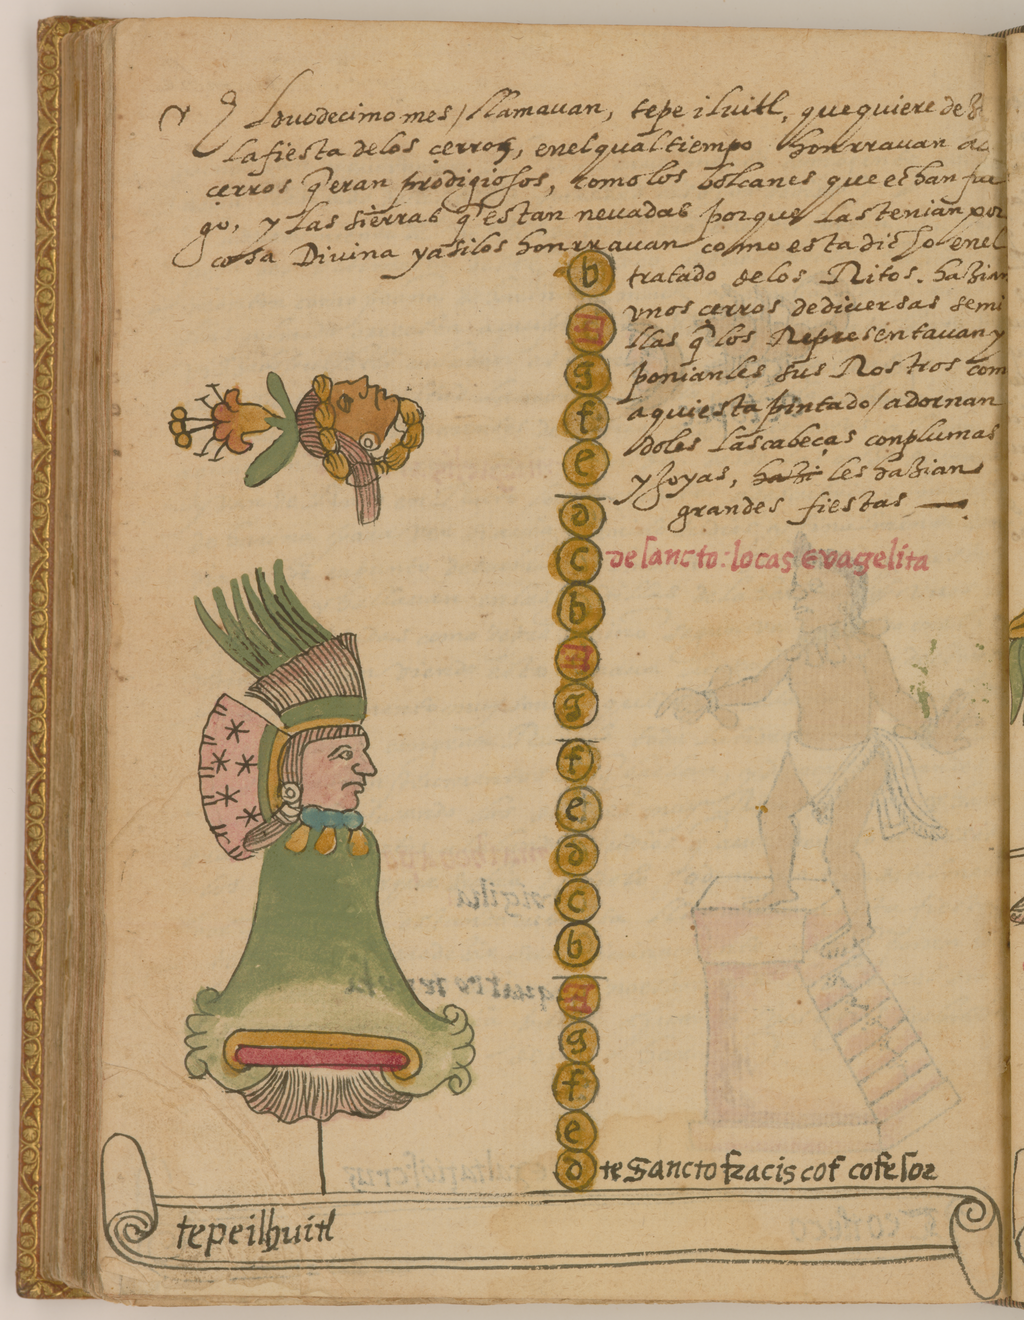 El duodecimo mes / llamavan, tepe iluitl, que quiere dezir
la fiesta de los cerros, en el qual tiempo honrravan
cerros q̃ eran prodigiosos, como los bolcanes que echan fue
go, y las sierras q̃ estan nevadas porque las tenian por
cosa Divina y asi los honrravan como esta dicho en el
b tratado de los Ritos. hazian
A vnos cerros de diversas semi
llas q̃ los Representavan y
g ponianles sus Rostros com
f aqui esta pintado / adornan
doles las cabeças con plumas
e y Joyas, hazi les hazian
d grandes fiestas
c de sancto: locas evagelita
b
A
g
f
e
d
c
b
A
g
f
e
d te Sancto fracis cof cofesor
tepeilhuitl